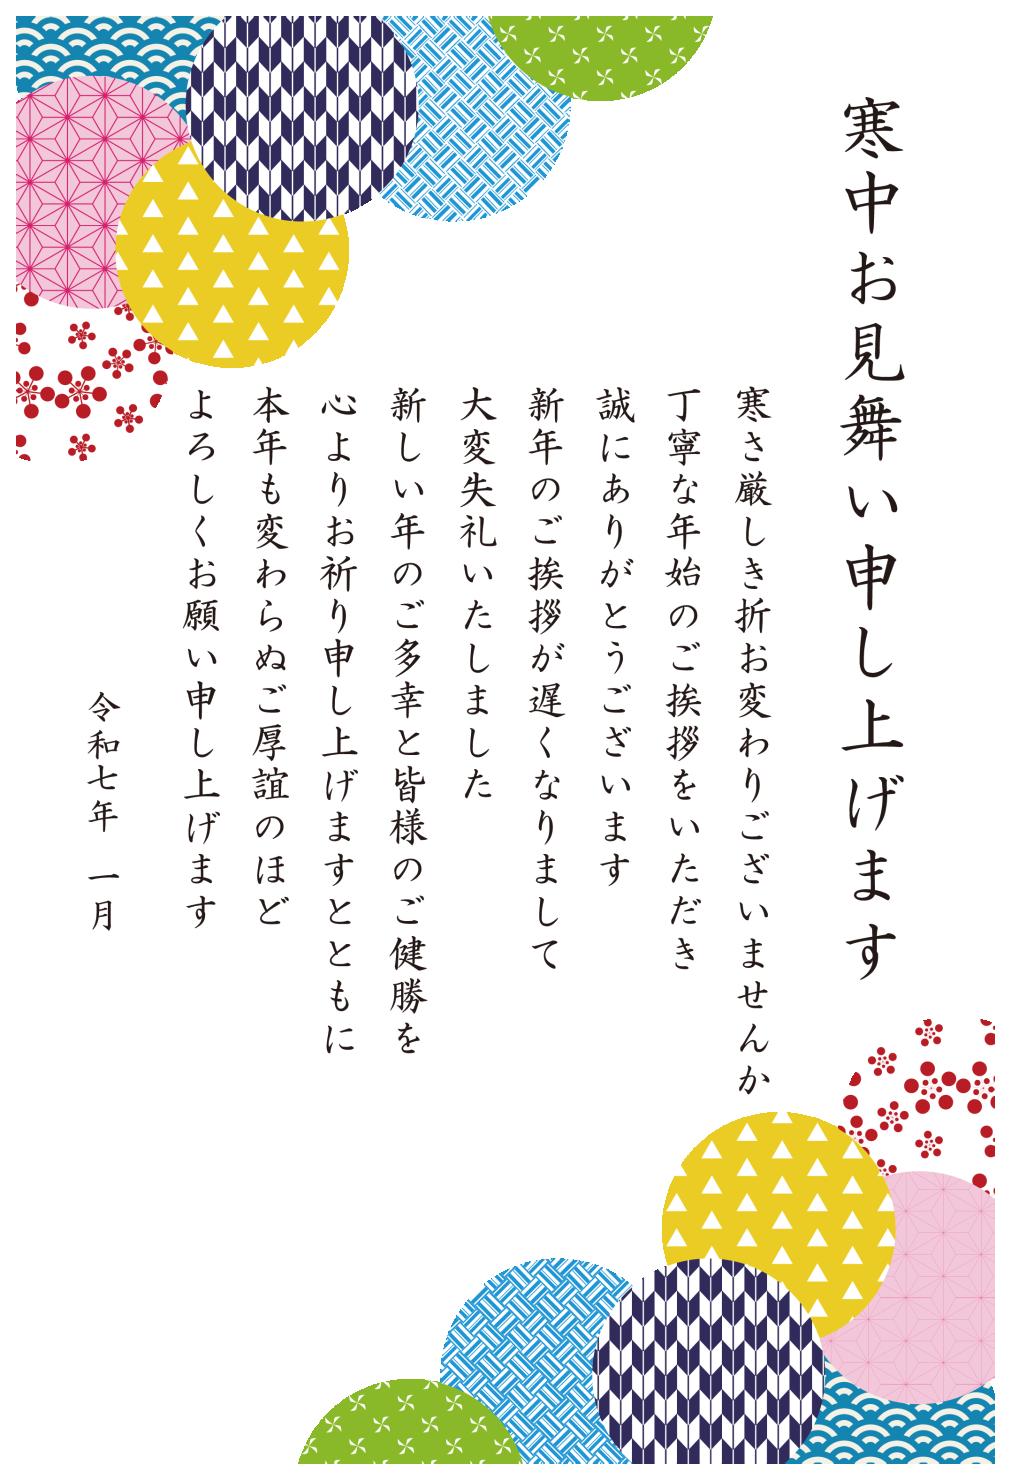 寒中お見舞い申し上げます
寒さ厳しき折お変わりございませんか
丁寧な年始のご挨拶をいただき
誠にありがとうございます
新年のご挨拶が遅くなりまして
大変失礼いたしました
新しい年のご多幸と皆様のご健勝を
心よりお祈り申し上げますとともに
本年も変わらぬご厚誼のほど
よろしくお願い申し上げます
令和七年　一月